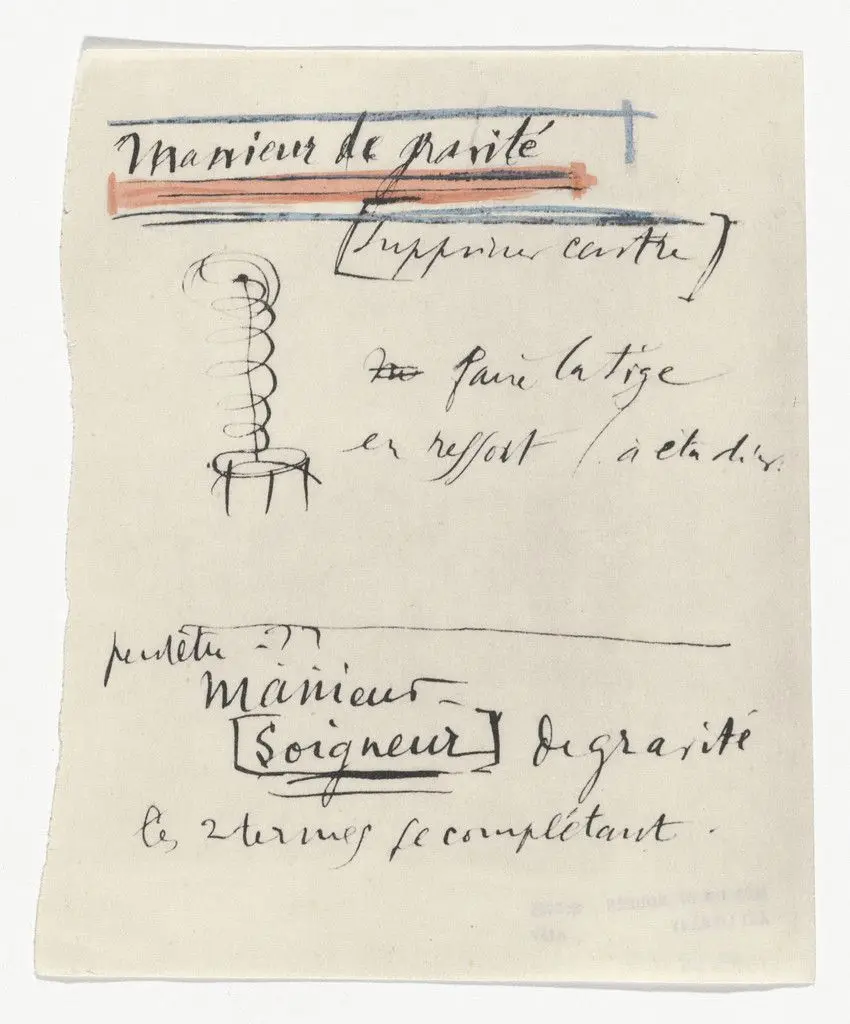 Manieur de gravité
[Supprimer
faire la tige
en ressort (à étudier.
peut être -??
Manieur-
[Soigneur] de gravité
les 2 termes se complétant.